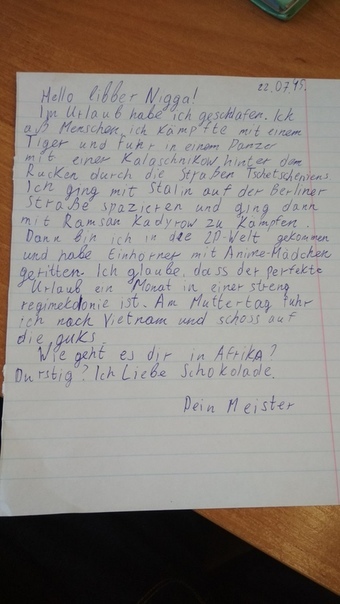 22.07.45.
Hello libber Nigga!
Im Urlaub habe ich geschlafen. Ich
aß Menschen, ich kämpfte mit einem
Tiger und fuhr in einem Panzer
mit einer Kalaschnikow hinter dem
Rücken durch die Straßen Tschetscheniens
Ich ging mit Stalin auf der Berliner
Straße spazieren und ging dann
mit Ramsan Kadyrow zu kämpfen.
Dann bin ich in die 2D-Welt gekommen
und habe Einhörner mit Anime-Mädchen
geritten. Ich glaube, dass der perfekte
Urlaub ein Monat in einer streng
regimekolonie ist. Am Muttertag fuhr
ich nach Vietnam und schoss auf
die guks.
Wie geht es dir in Afrika?
Durstig? Ich Liebe Schokolade.
Dein Meister